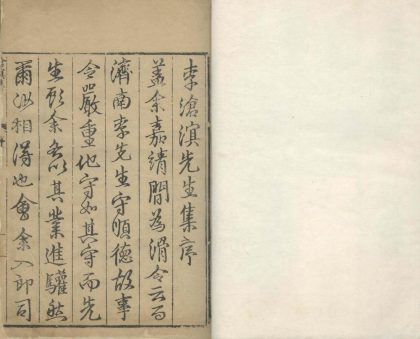 李滄溟先生集序
蓋余嘉靖間為滑令云而
濟南李先生守順德故事
令嚴重他守如其守而先
生頋余各以其業進驩然
爾汝相得也會余入郎司